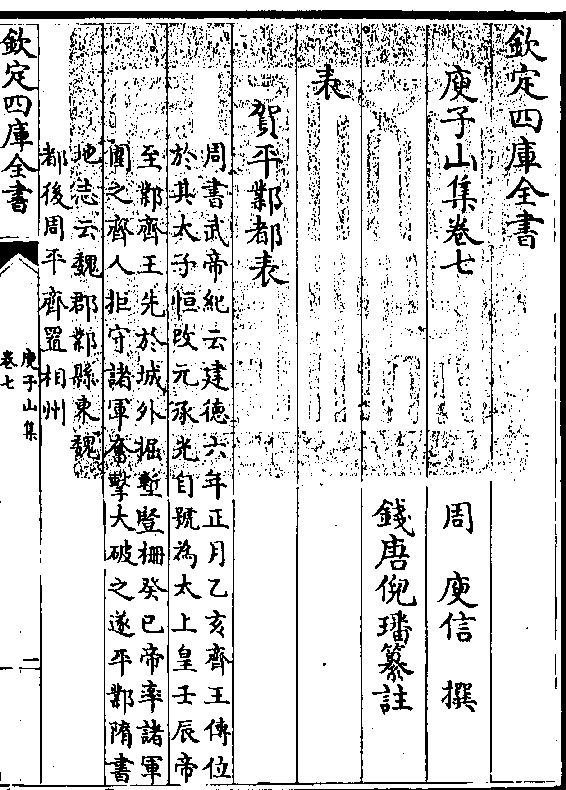 欽定四庫全書
庾子山集卷七
周 庾信 撰
錢唐倪璠纂註
表
賀平鄴都表
周書武帝紀云建德六年正月乙亥齊王傳位
於其太子恒改元承光自號為太上皇壬辰帝
至鄴齊王先於城外掘塹竪柵癸巳帝率諸軍
圍之齊人拒守諸軍奮擊大破之遂平鄴隋書
地志云魏郡鄴縣東魏
都後周平齊置相州
欽定四庫全書
庾子山集
卷七
一